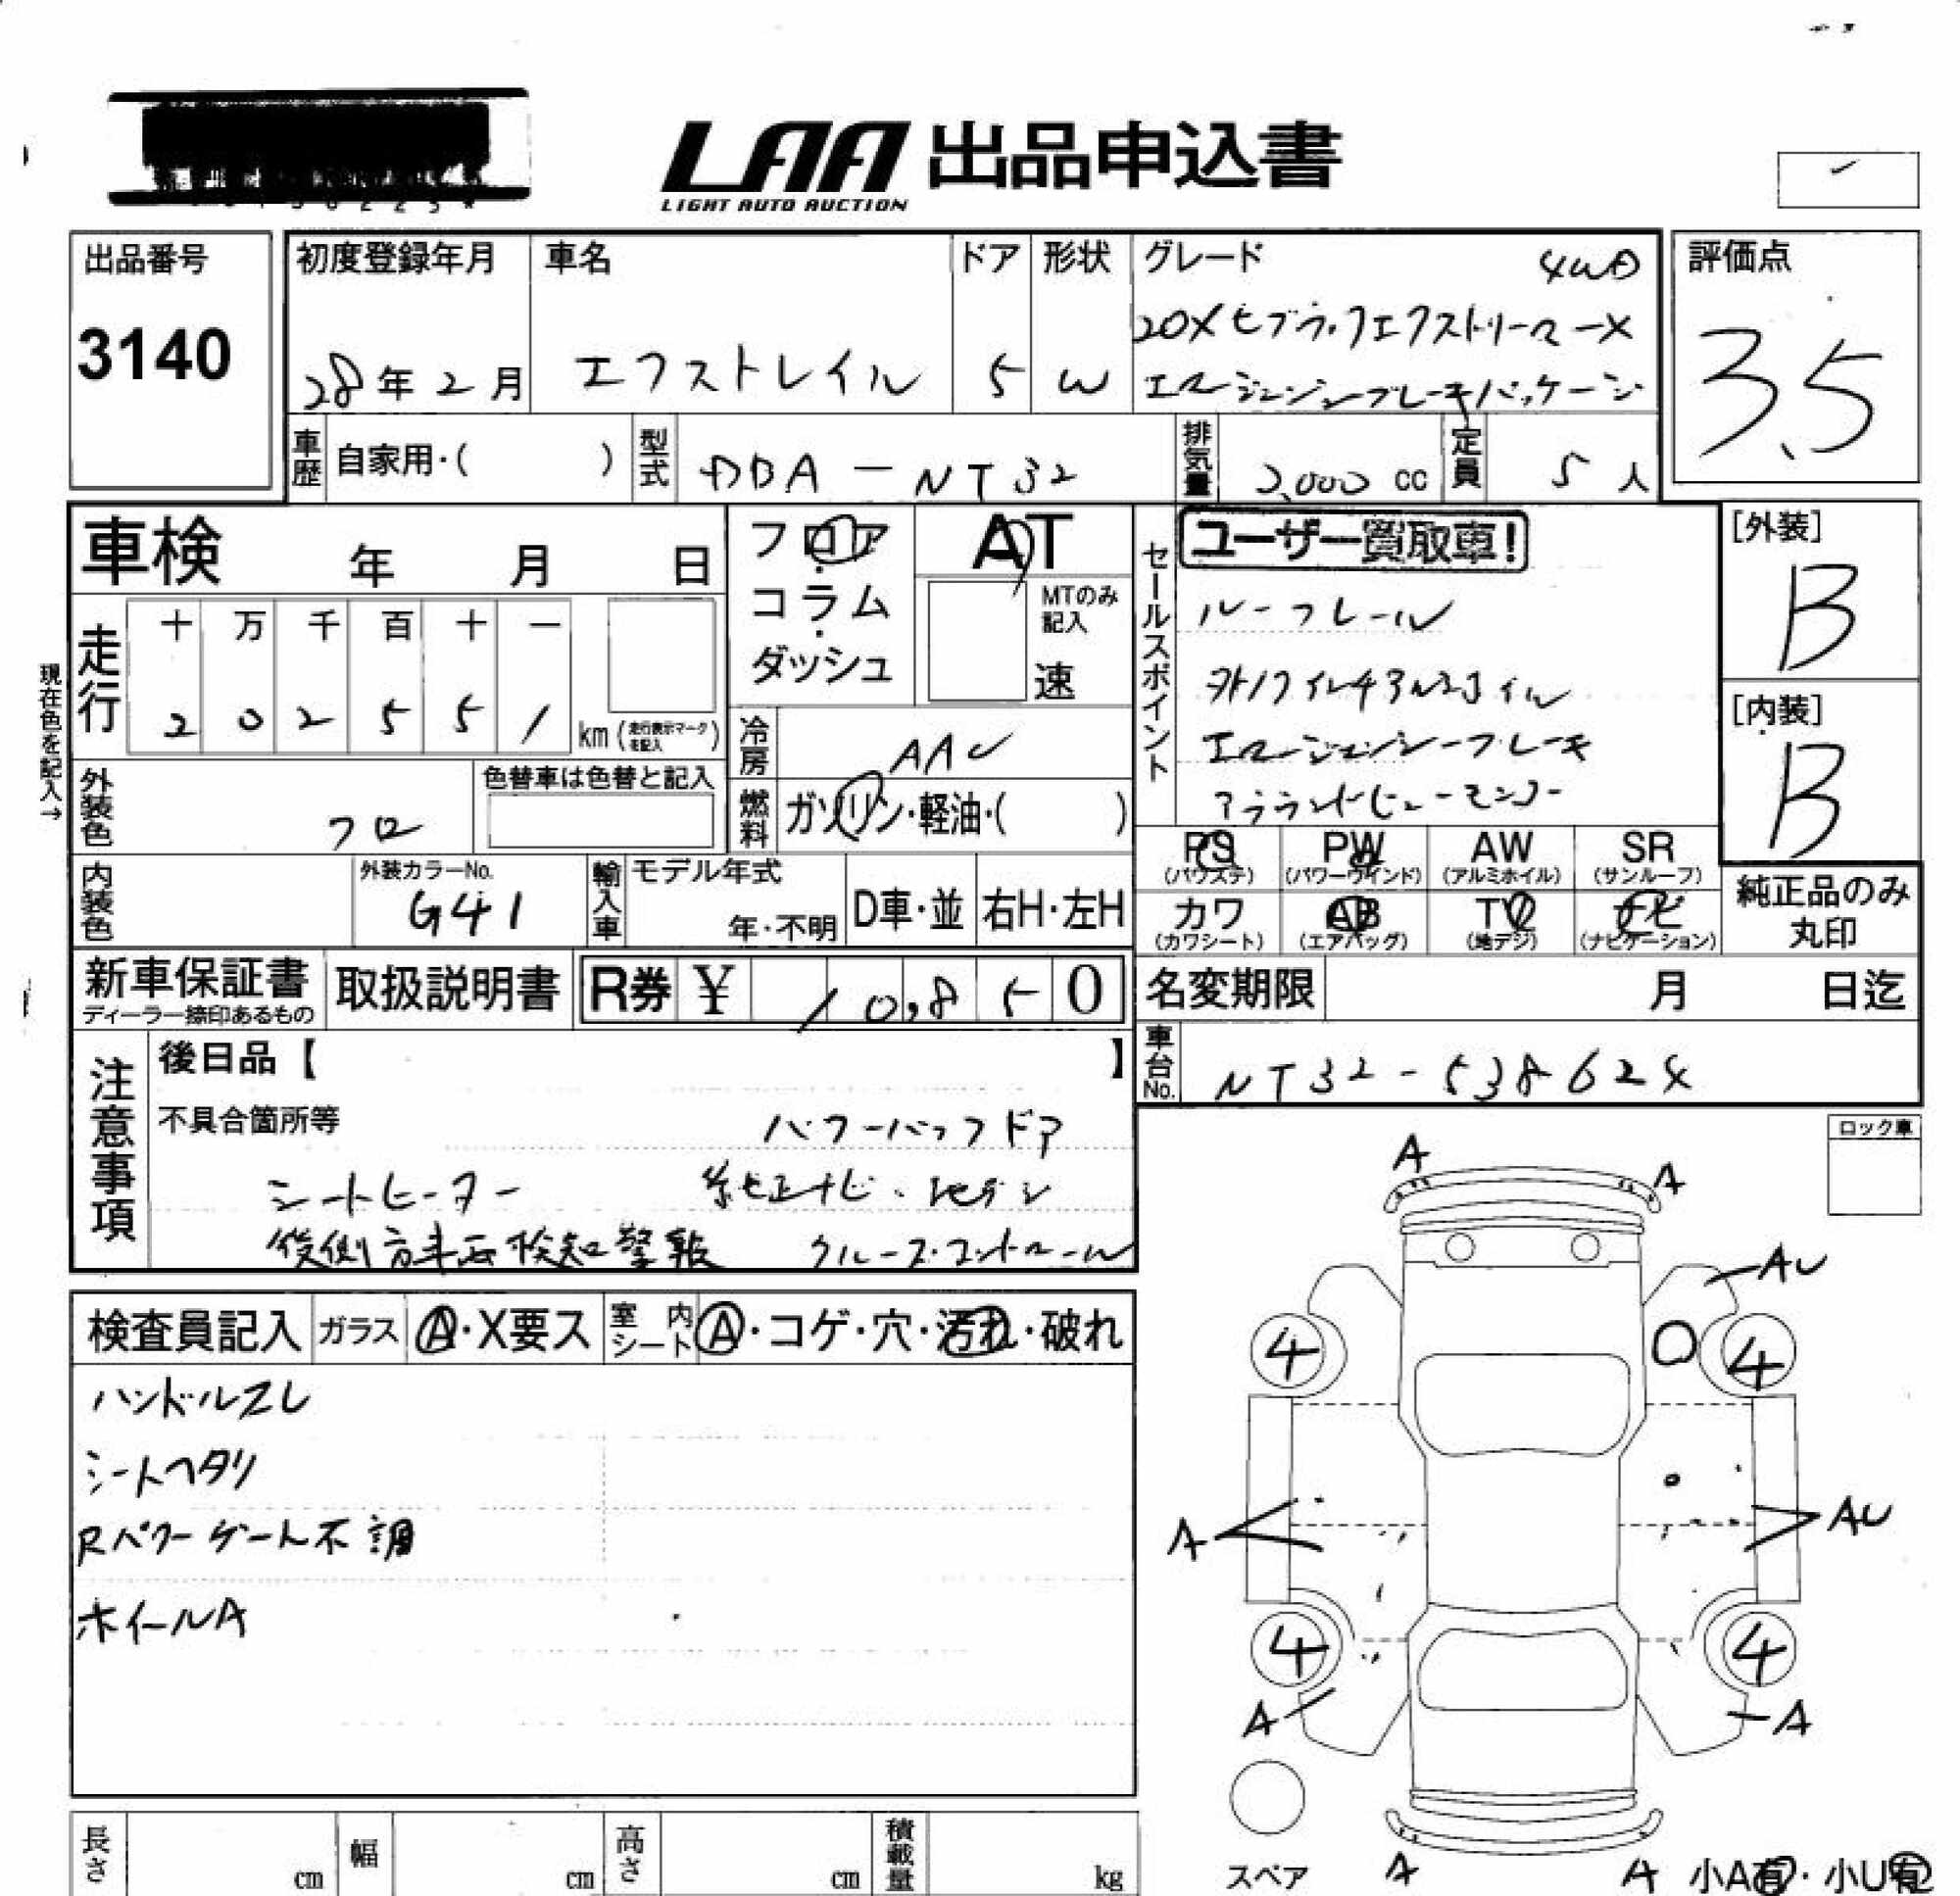 LAA 出品申込書
LIGHT AUTO AUCTION
出品番号
3140
初度登録年月
28年2月
車名
エクストレイル
ドア
5
形状
W
グレード
4WD
20X
エマージェンシーブレーキパッケージ
評価点
3.5
車歴
自家用・( )
型式
DBA-NT32
排気量
2,000 cc
定員
5人
車検 年 月 日
フロア・
コラム・
ダッシュ
AT
MTのみ
記入
速
セールスポイント
ユーザー買取車!
ルーフレール
エマージェンシーブレーキ
アラウンドビューモニター
[外装]
B
[内装]
B
現在色を記入→
走行
十 万 千 百 十 一
2 0 2 5 5 1
km (走行表示マークを記入)
冷房
AAC
外装色
クロ
色替車は色替と記入
燃料
ガソリン・軽油・( )
PS
(パワステ)
PW
(パワーウインド)
AW
(アルミホイル)
SR
(サンルーフ)
カワ
(カワシート)
AB
(エアバッグ)
TV
(地デジ)
ナビ
(ナビゲーション)
純正品のみ
丸印
内装色
外装カラーNo.
G41
輸入車
モデル年式
年・不明
D車・並
右H・左H
新車保証書
ディーラー捺印あるもの
取扱説明書
R券 ¥ 10,850
名変期限 月 日迄
車台No.
NT32-538624
注意事項
後日品【 】
不具合箇所等
パワーバックドア
シートヒーター
純正ナビ
後側方車両検知警報 クルーズコントロール
検査員記入
ガラス
A・X要ス
室内シート
A・コゲ・穴・汚れ・破れ
ハンドルスレ
シートヘタリ
Rパワーゲート不調
ホイールA
ロック車
A
A
AU
4
4
A
AU
4
4
A
A
スペア
A
A
小A有・小U有
長さ cm
幅 cm
高さ cm
積載量 kg